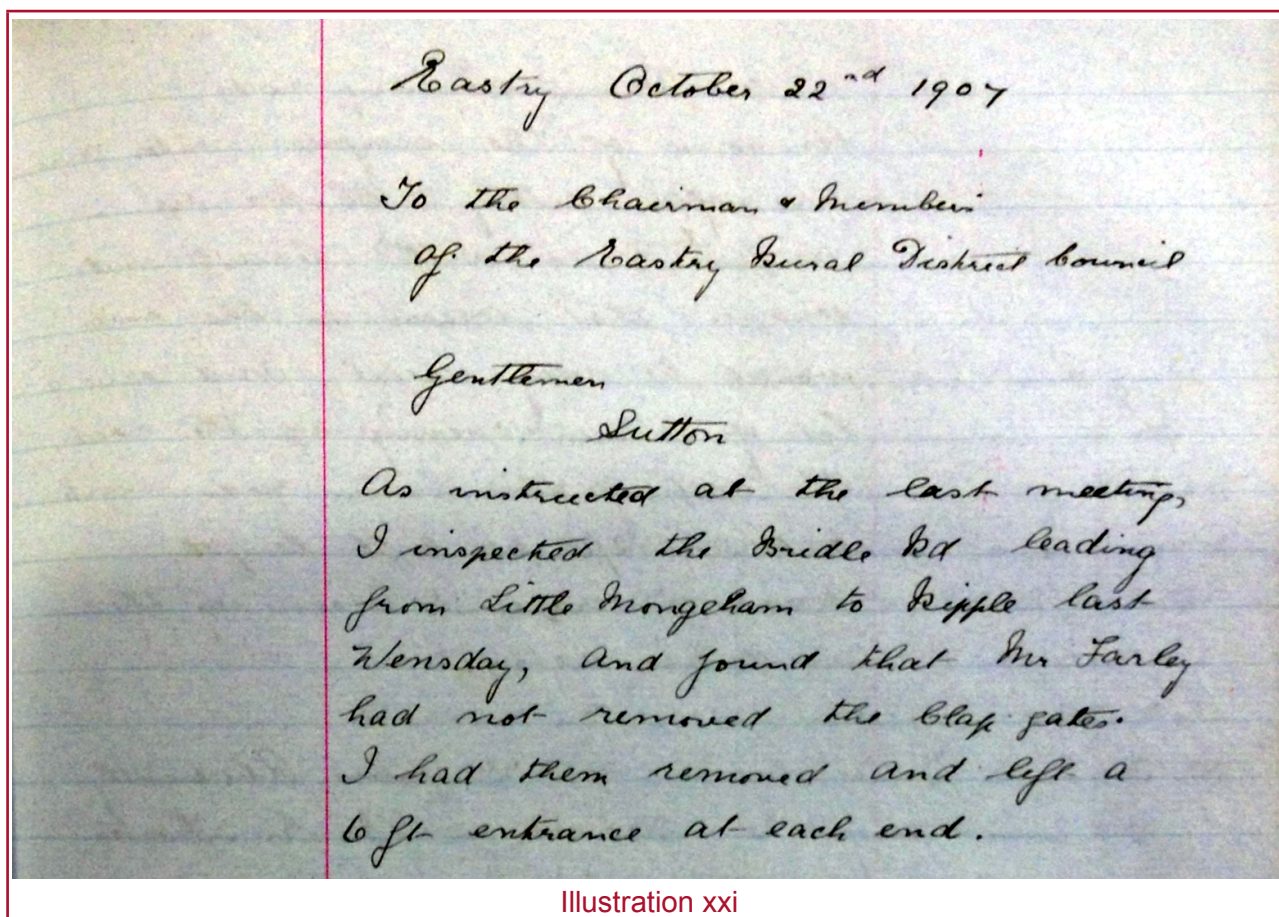 Eastry October 22nd 1907
To the Chairman & Members
of the Eastry Rural District Council
Gentlemen
Sutton
As instructed at the last meeting,
I inspected the Bridle Rd leading
from Little Mongeham to Ripple last
Wensday, and found that Mr Farley
had not removed the Clap gates.
I had them removed and left a
6 ft entrance at each end.
Illustration xxi